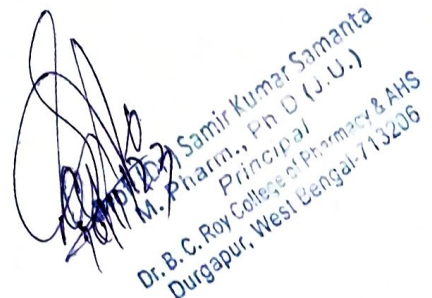 Samir Kumar Samanta
M. Pharm., Ph D (J.U.)
Principal
Dr. B. C. Roy College of Pharmacy & AHS
Durgapur, West Bengal-713206